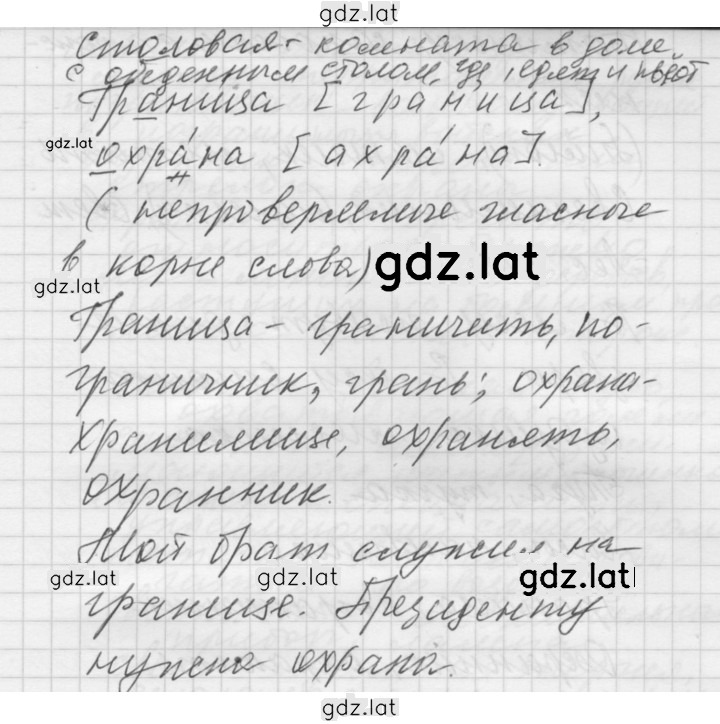 gdz.lat
Столовая - комната в доме
с обеденным столом, где едят и пьют
Граница [граница],
gdz.lat
охра́на [ахра́на].
(непроверяемые гласные
в корне слова)
gdz.lat
gdz.lat
Граница - граничить, по-
граничник, грань; охрана-
хранилище, охранять,
охранник.
Мой брат служил на
gdz.lat gdz.lat gdz.lat
границе. Президенту
нужна охрана.
gdz.lat